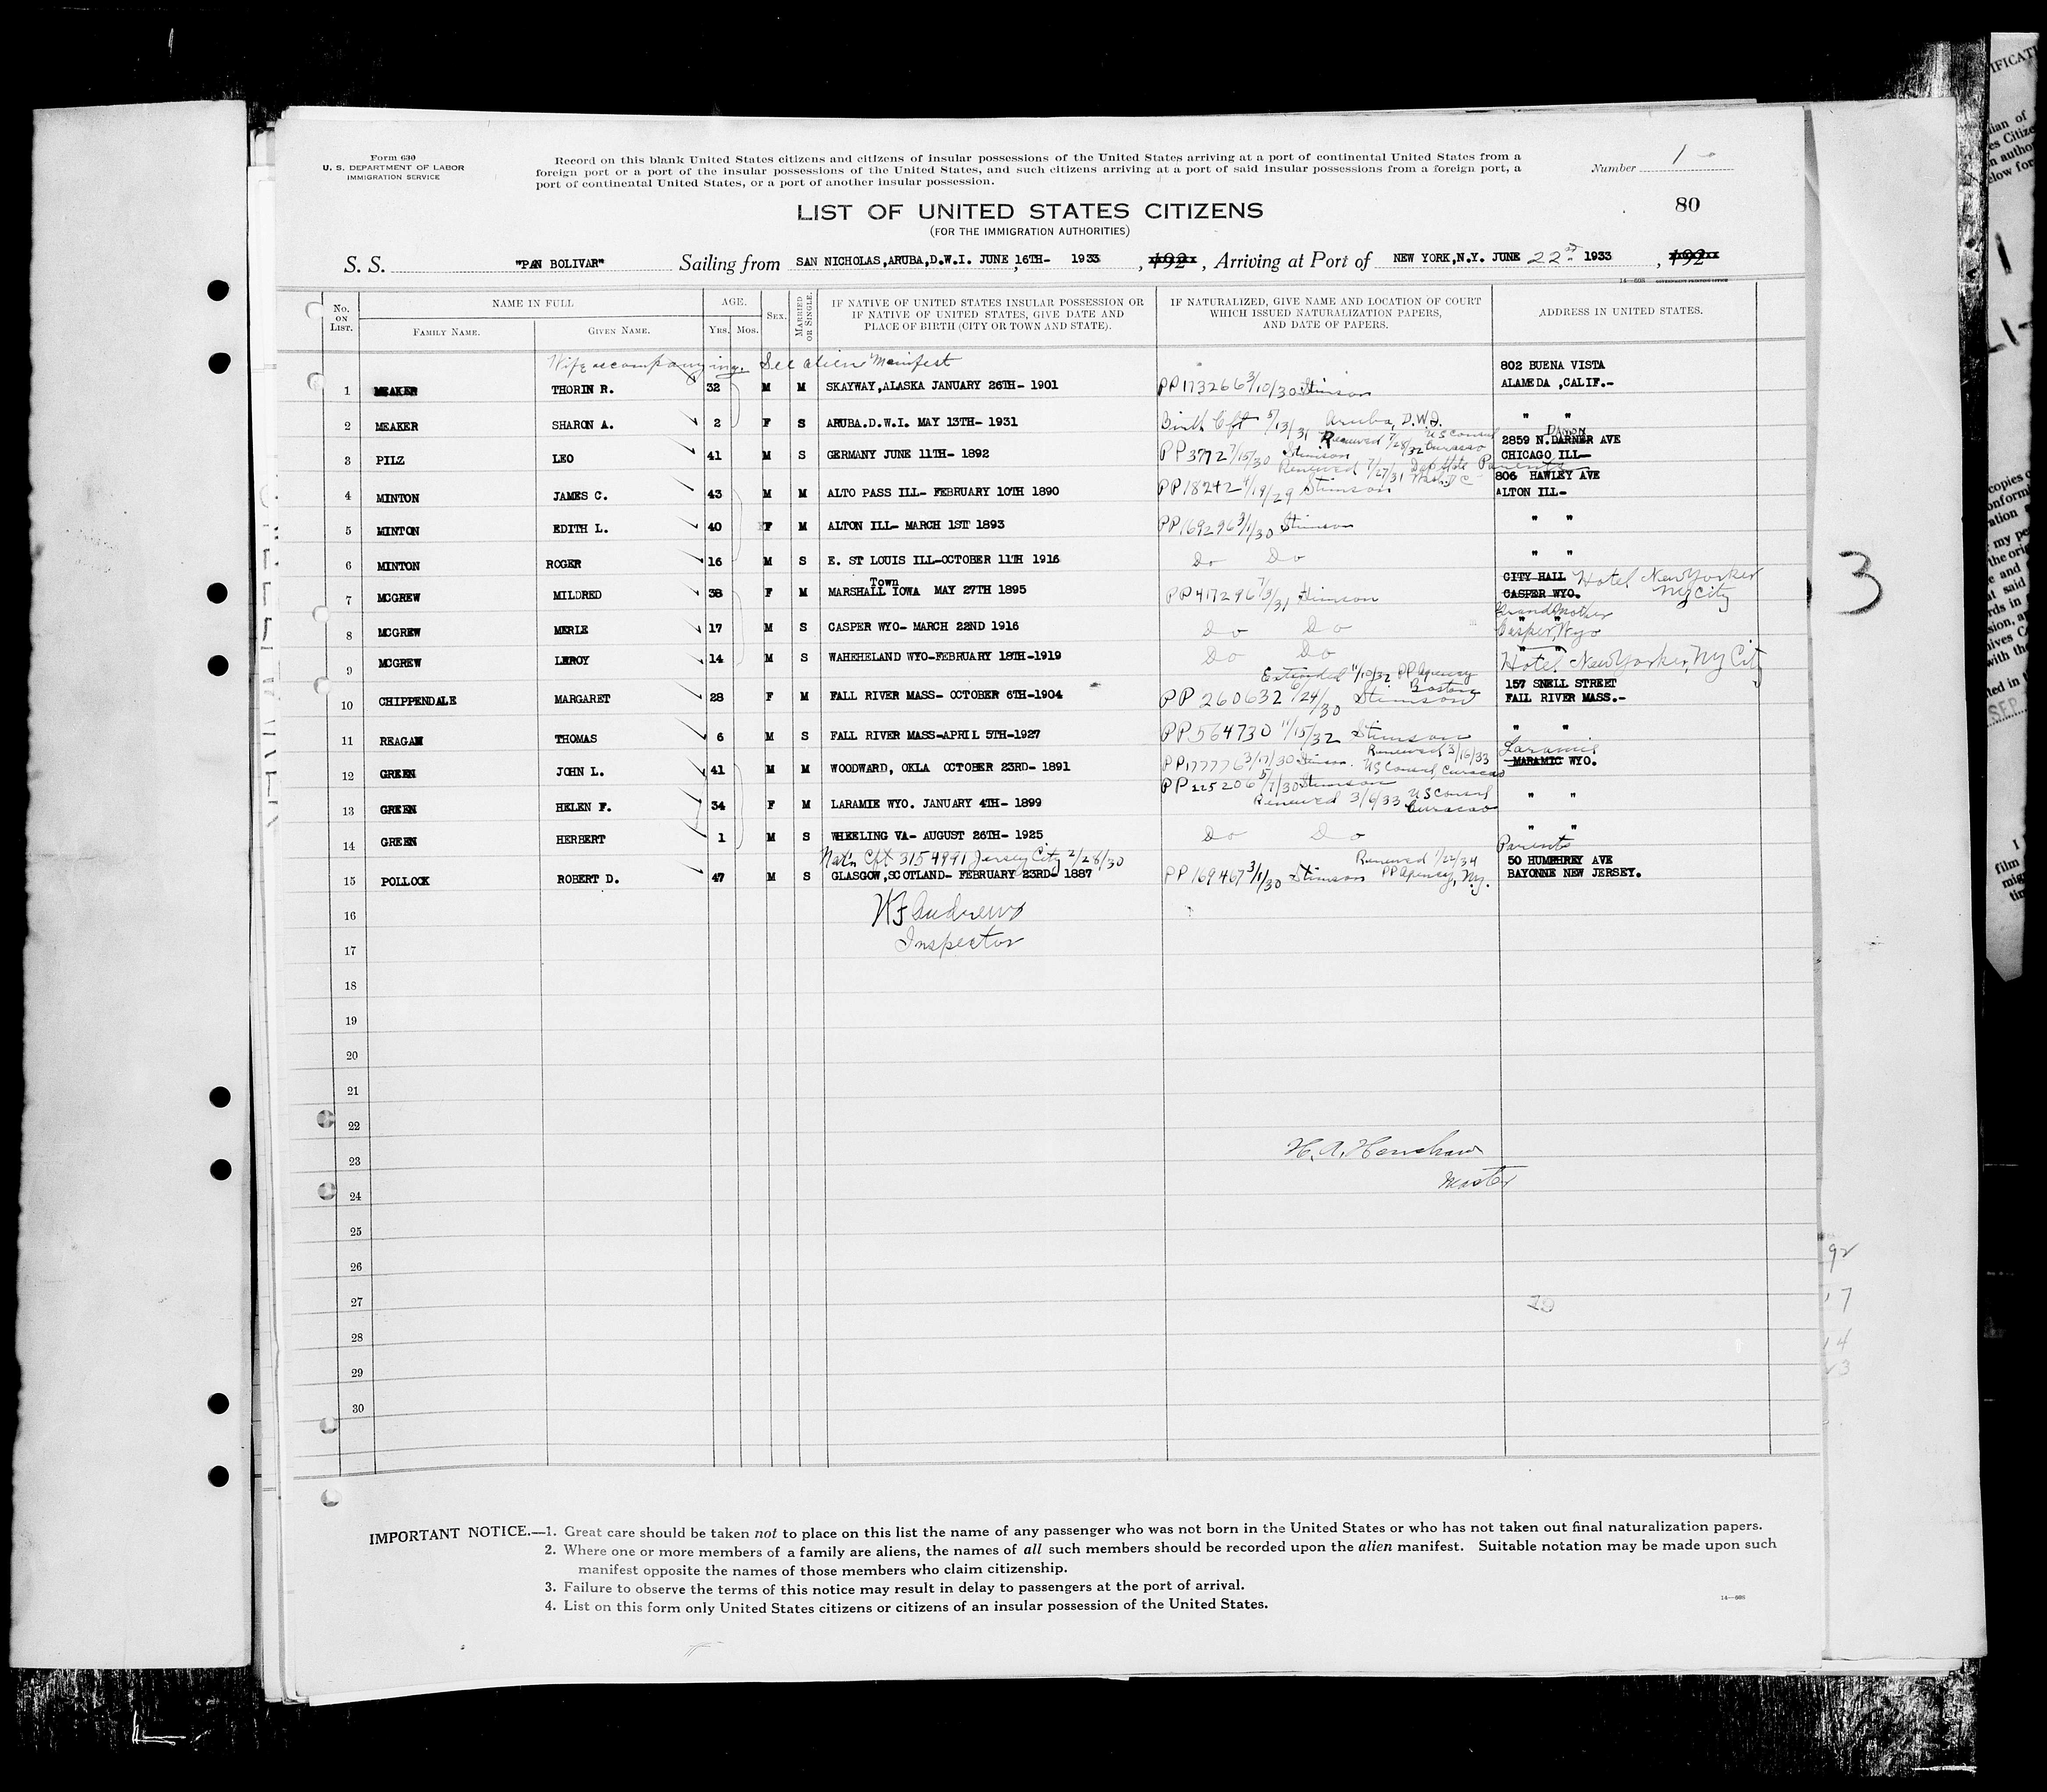 Form 630
U. S. DEPARTMENT OF LABOR
IMMIGRATION SERVICE
Record on this blank United States citizens and citizens of insular possessions of the United States arriving at a port of continental United States from a
foreign port or a port of the insular possessions of the United States, and such citizens arriving at a port of said insular possessions from a foreign port, a
port of continental United States, or a port of another insular possession.
Number 1
80
LIST OF UNITED STATES CITIZENS
(FOR THE IMMIGRATION AUTHORITIES)
S. S. "PAN BOLIVAR" Sailing from SAN NICHOLAS,ARUBA,D.W.I. JUNE 16TH- 1933, 192, Arriving at Port of NEW YORK,N.Y. JUNE 22nd 1933, 192
14-608 GOVERNMENT PRINTING OFFICE
No. ON LIST. NAME IN FULL FAMILY NAME. GIVEN NAME. AGE. YRS. MOS. SEX. MARRIED OR SINGLE. IF NATIVE OF UNITED STATES INSULAR POSSESSION OR IF NATIVE OF UNITED STATES, GIVE DATE AND PLACE OF BIRTH (CITY OR TOWN AND STATE). IF NATURALIZED, GIVE NAME AND LOCATION OF COURT WHICH ISSUED NATURALIZATION PAPERS, AND DATE OF PAPERS. ADDRESS IN UNITED STATES.
Wife accompanying. See aliens Manifest
802 BUENA VISTA
1 MEAKER THORIN R. 32 M M SKAYWAY,ALASKA JANUARY 26TH- 1901 PP173266 3/10/30 Stimson ALAMEDA ,CALIF.-
2 MEAKER SHARON A. 2 F S ARUBA.D.W.I. MAY 13TH- 1931 Birth Cft 5/13/31 Aruba, D.W.I. " "
Renewed 7/28/32 US Consul Curacao
Damon
2859 N.DARNER AVE
3 PILZ LEO 41 M S GERMANY JUNE 11TH- 1892 PP3772 7/15/30 Stimson CHICAGO ILL-
Renewed 7/27/31 Dept State Wash DC Parents
806 HAWLEY AVE
4 MINTON JAMES C. 43 M M ALTO PASS ILL- FEBRUARY 10TH 1890 PP18242 4/19/29 Stimson ALTON ILL-
5 MINTON EDITH L. 40 F M ALTON ILL- MARCH 1ST 1893 PP169296 3/1/30 Stimson " "
6 MINTON ROGER 16 M S E. ST LOUIS ILL-OCTOBER 11TH 1916 Do Do " "
Town
CITY HALL Hotel New Yorker
7 MCGREW MILDRED 38 F M MARSHALL IOWA MAY 27TH 1895 PP417296 7/3/31 Stimson CASPER WYO. NY City
Grand Mother
8 MCGREW MERLE 17 M S CASPER WYO- MARCH 22ND 1916 Do Do " " Casper, Wyo
9 MCGREW LEROY 14 M S WAHEHELAND WYO-FEBRUARY 18TH-1919 Do Do " " Hotel New Yorker, NY City
Extended 11/10/32 PP Agency Boston
157 SNELL STREET
10 CHIPPENDALE MARGARET 28 F M FALL RIVER MASS- OCTOBER 6TH-1904 PP 260632 6/24/30 Stimson FALL RIVER MASS.-
11 REAGAN THOMAS 6 M S FALL RIVER MASS-APRIL 5TH-1927 PP564730 11/15/32 Stimson " "
Renewed 3/16/33 US Consul Curacao
Laramie
12 GREEN JOHN L. 41 M M WOODWARD, OKLA OCTOBER 23RD- 1891 PP177776 3/17/30 Stimson. MARAMIC WYO.
13 GREEN HELEN F. 34 F M LARAMIE WYO. JANUARY 4TH- 1899 PP225206 5/7/30 Stimson " "
Renewed 3/6/33 US Consul Curacao
14 GREEN HERBERT 1 M S WHEELING VA- AUGUST 26TH- 1925 Do Do " "
Nat'n Cft 3154991 Jersey City 2/28/30
Renewed 1/22/34 PP Agency, N.Y.
Parents
50 HUMPHREY AVE
15 POLLOCK ROBERT D. 47 M S GLASGOW,SCOTLAND- FEBRUARY 23RD- 1887 PP169467 3/1/30 Stimson BAYONNE NEW JERSEY.
16
WF Andrews
17
Inspector
18
19
20
21
22
23
H. A. Henshaw
24
Master
25
26
27
28
29
30
3
IMPORTANT NOTICE.—1. Great care should be taken not to place on this list the name of any passenger who was not born in the United States or who has not taken out final naturalization papers.
2. Where one or more members of a family are aliens, the names of all such members should be recorded upon the alien manifest. Suitable notation may be made upon such
manifest opposite the names of those members who claim citizenship.
3. Failure to observe the terms of this notice may result in delay to passengers at the port of arrival.
4. List on this form only United States citizens or citizens of an insular possession of the United States.
14-608